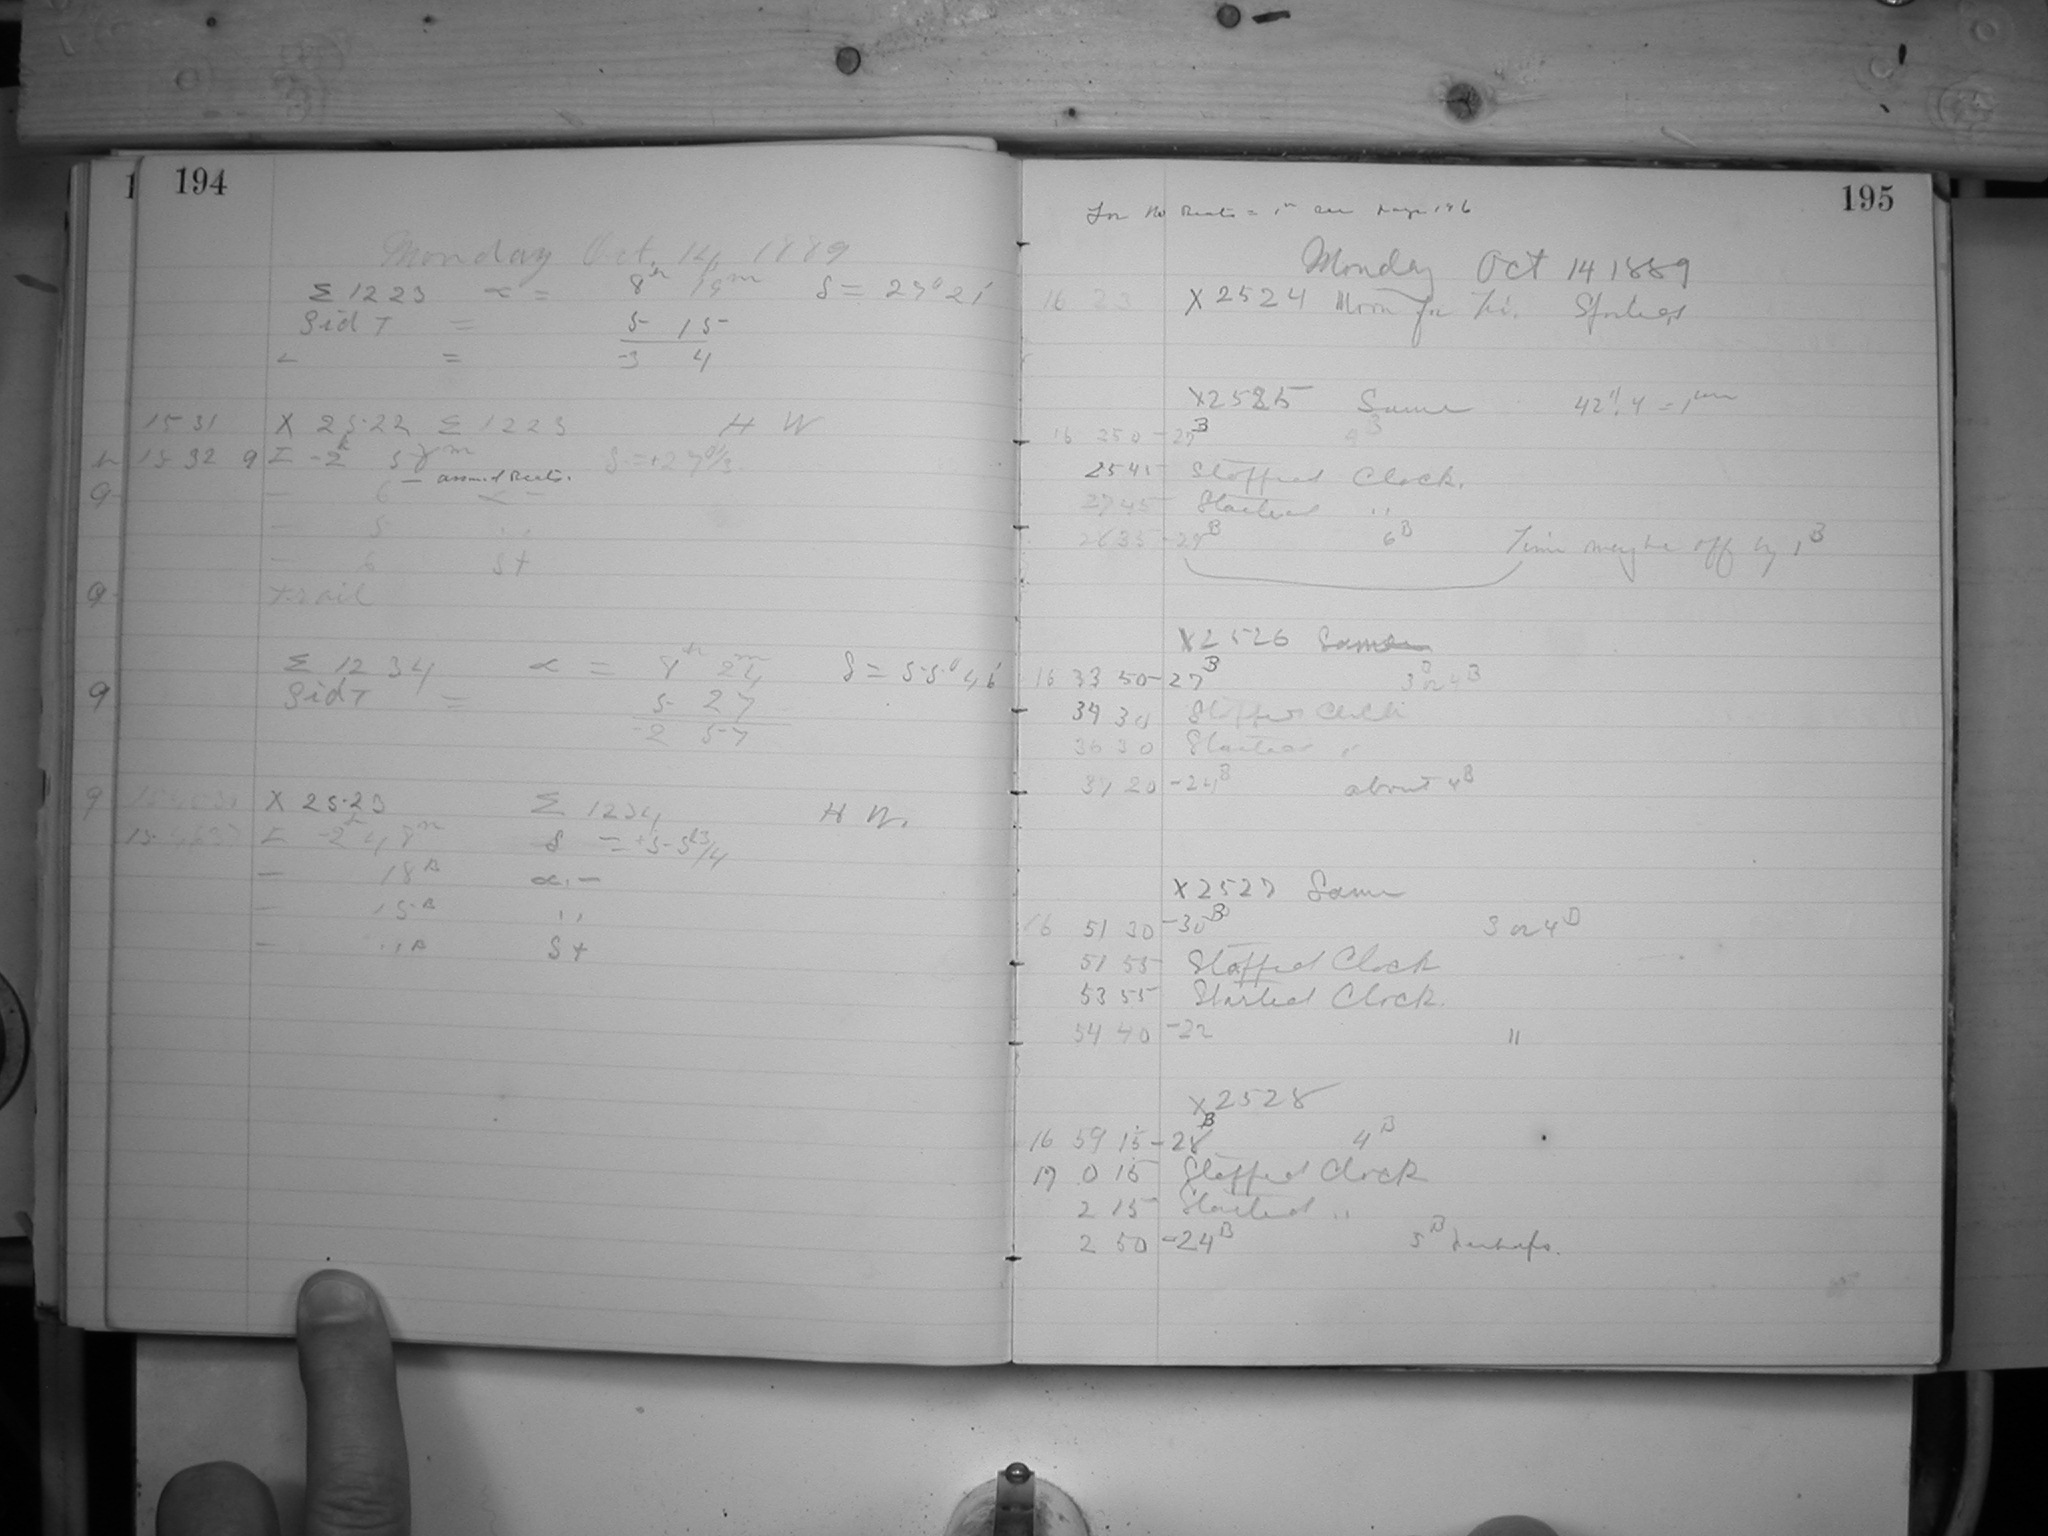 194
Monday Oct. 14, 1889
Σ 1223 α = 8h 19m δ = 27° 21'
Sid T = 5 15
= -3 4
15 31 X 2522 Σ 1223 H W
15 32 9 I -2h 57m
assumed
- 6 α -
- 5 ,,
- 6 St
trail
Σ 1234 α = 8h 24m δ = 55° 46'
Sid T = 5 27
-2 57
X 2523 Σ 1234 H W.
I -2h 48m δ = +55 3/4
- 18B α. -
- 15B ,,
- St
195
For No see page 196
Monday Oct 14 1889
16 23 X 2524 Moon for
X 2525 Same 42".4 = 1cm
16 25 0 -27B
25 45 Stopped Clock.
27 45 Started ,,
28 35 -29B 6B Time may be off by 1B
X 2526 Same
16 33 50 -27B 3 or 4B
34 30 Stopped Clock
36 30 Started ,,
37 20 -24B about 4B
X 2527 Same
16 51 30 -30B 3 or 4B
51 55 Stopped Clock
53 55 Started Clock.
54 40 -22 "
X 2528
16 59 15 -28B 4B
17 0 15 Stopped Clock
2 15 Started ,,
2 50 -24B 5B perhaps.